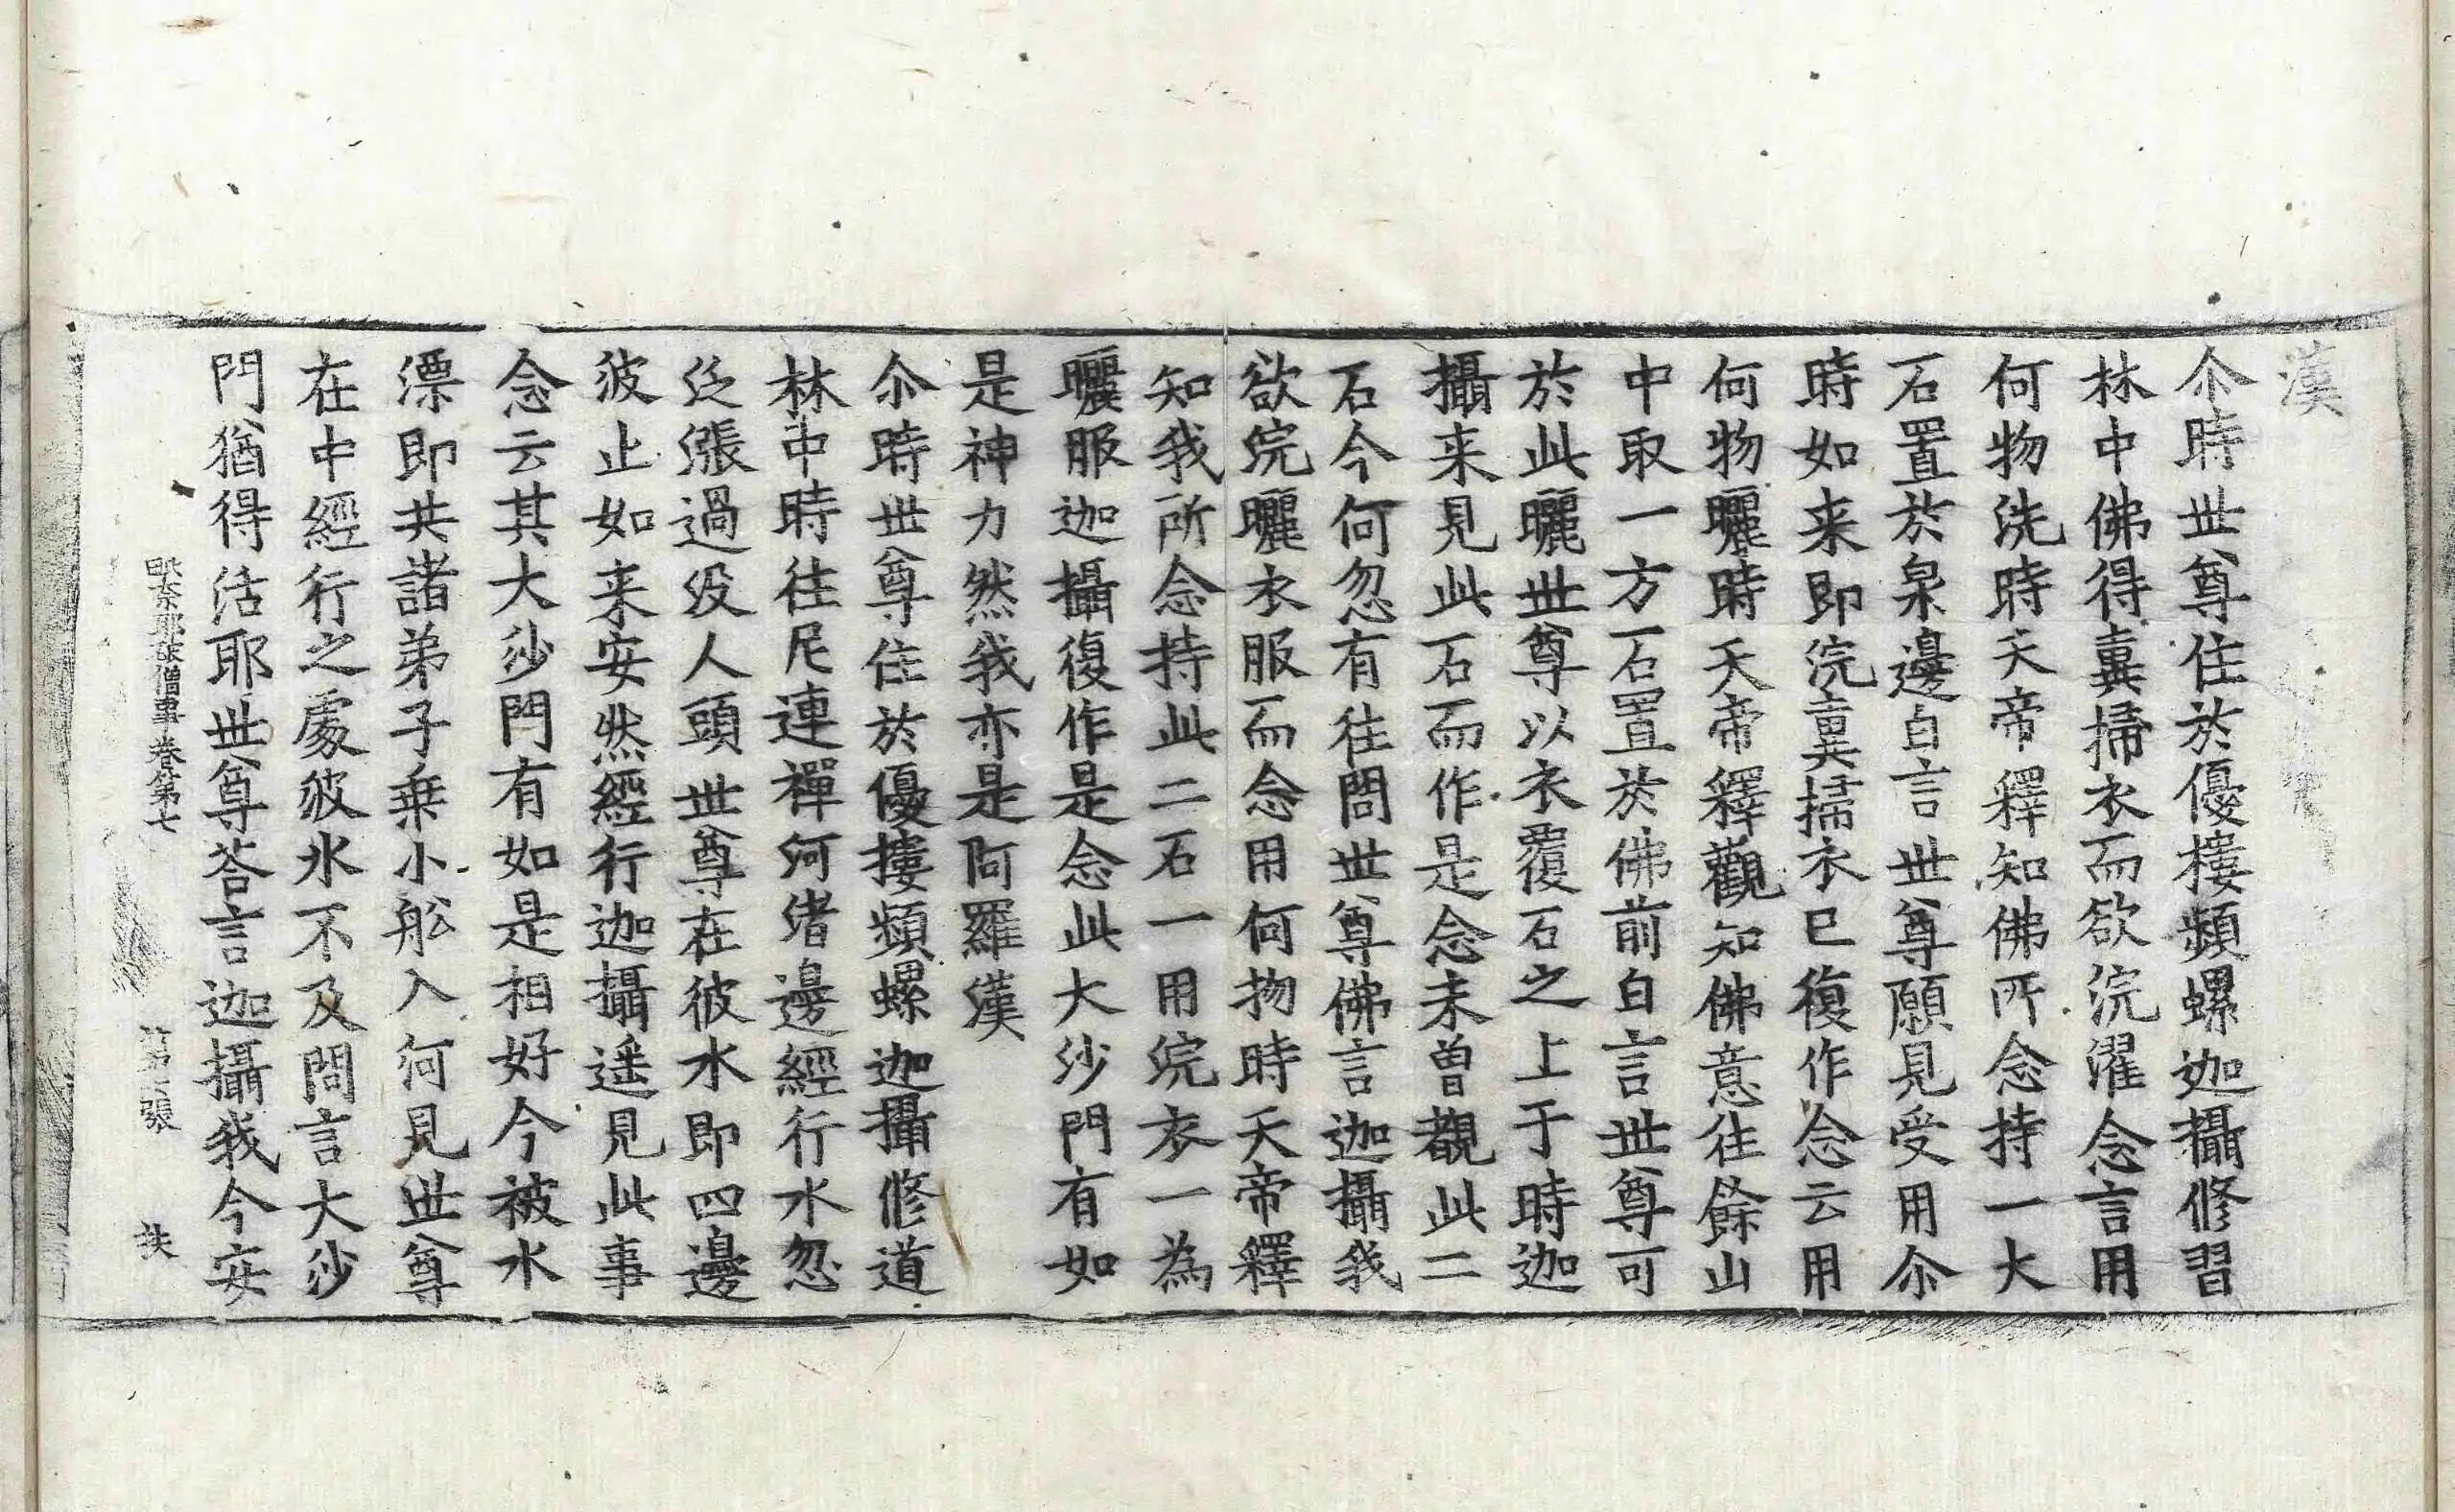 漢
尒時世尊住於優樓頻螺迦攝修習
林中佛得糞掃衣而欲浣濯念言用
何物洗時天帝釋知佛所念持一大
石置於泉邊白言世尊願見受用尒
時如来即浣糞掃衣已復作念云用
何物曬時天帝釋觀知佛意往餘山
中取一方石置於佛前白言世尊可
於此曬世尊以衣覆石之上于時迦
攝来見此石而作是念未曽觀此二
石今何忽有往問世尊佛言迦攝我
欲浣曬衣服而念用何物時天帝釋
知我所念持此二石一用浣衣一為
曬服迦攝復作是念此大沙門有如
是神力然我亦是阿羅漢
尒時世尊住於優摟頻螺迦攝修道
林中時往尼連禪河渚邊經行水忽
泛漲過没人頭世尊在彼水即四邊
彼止如来安然經行迦攝遥見此事
念云其大沙門有如是相好今被水
漂即共諸弟子乗小舩入河見世尊
在中經行之處彼水不及問言大沙
門猶得活耶世尊荅言迦攝我今安
毗奈耶破僧事卷第七 第張 扶